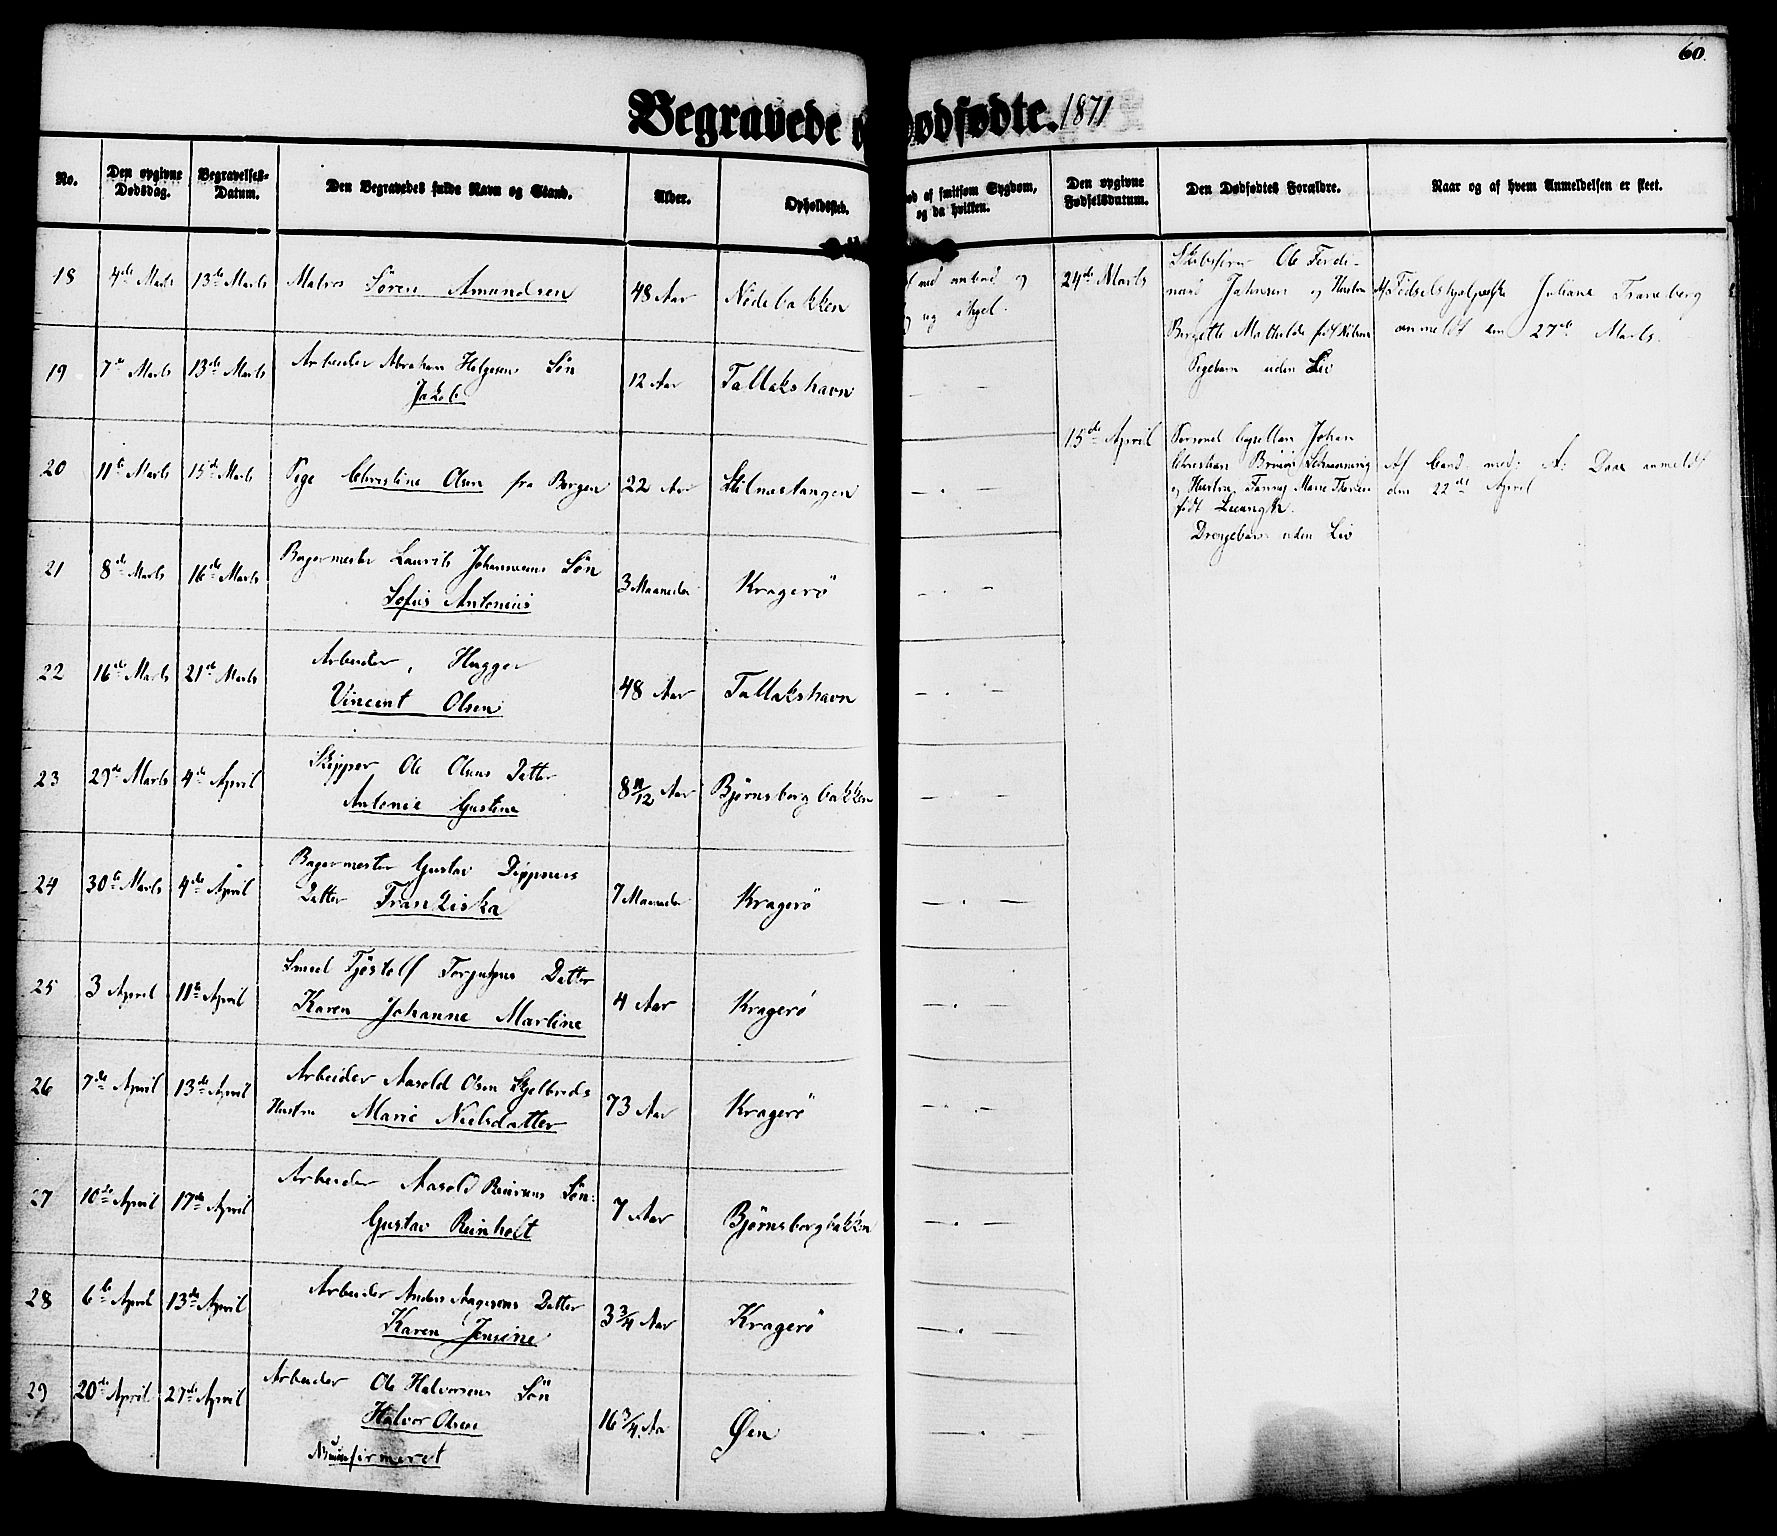 60.
Begravede Dødfødte. 1871
No. Den opgivne Dødsdag. Begravelses-Datum. Den Begravedes fulde Navn og Stand. Alder. Opholdssted.
af smitsom Sygdom, og da hvilken. Den opgivne Fødselsdatum. Den Dødfødtes Forældre. Naar og af hvem Anmeldelsen er skeet.
18 4de Marts 13de Marts Matros Sören Amundsen 48 Aar Nödebakken
19 7de Marts 13de Marts Arbeider Abraham Helgesens Sön
Jakob 12 Aar Tallakshavn
20 11te Marts 15de Marts Pige Christine Olsen fra Bergen 22 Aar Stilnestangen
21 8de Marts 16de Marts Bagermester Laurits Johannesens Sön
Sofus Antonius 3 Maaneder Kragerö
22 16de Marts 21de Marts Arbeider, Hugger
Vincent Olsen 48 Aar Tallakshavn
23 29de Marts 4de April Skipper Ole Olsens Datter
Antonie Gustine 8 11/12 Aar Björnsborgbakken
24 30te Marts 4de April Bagermester Gustav Döppners
Datter Franziska 7 Maaneder Kragerö
25 3 April 11te April Smed Tjöstolf Datter
Karen Johanne Martine 4 Aar Kragerö
26 7de April 13de April Arbeider Aasold Olsen Skjelbreds
Hustru Marie Nielsdatter 73 Aar Kragerö
27 10de April 17de April Arbeider Aasold Sön:
Gustav Reinholt 7 Aar Björnsborgbakken
28 6te April 13de April Arbeider Anders Aagesens Datter
Karen Jensine 3 3/4 Aar Kragerö
29 20de April 27de April Arbeider Ole Halvorsens Sön
Halvor Olsen 16 3/4 Aar Øen
24de Marts Ole Ferdi-
nand Johnsen og Hustru
Birgitte Mathilde født
Pigebarn uden Liv
Af Fødselshjælperske Juliane Traneberg
anmeldt den 27de Marts.
15de April Johan
Christian
og Hustru Fanny Marie
født
Drengebarn uden Liv
Af Cand. med: A: Daae anmeldt
den 22de April